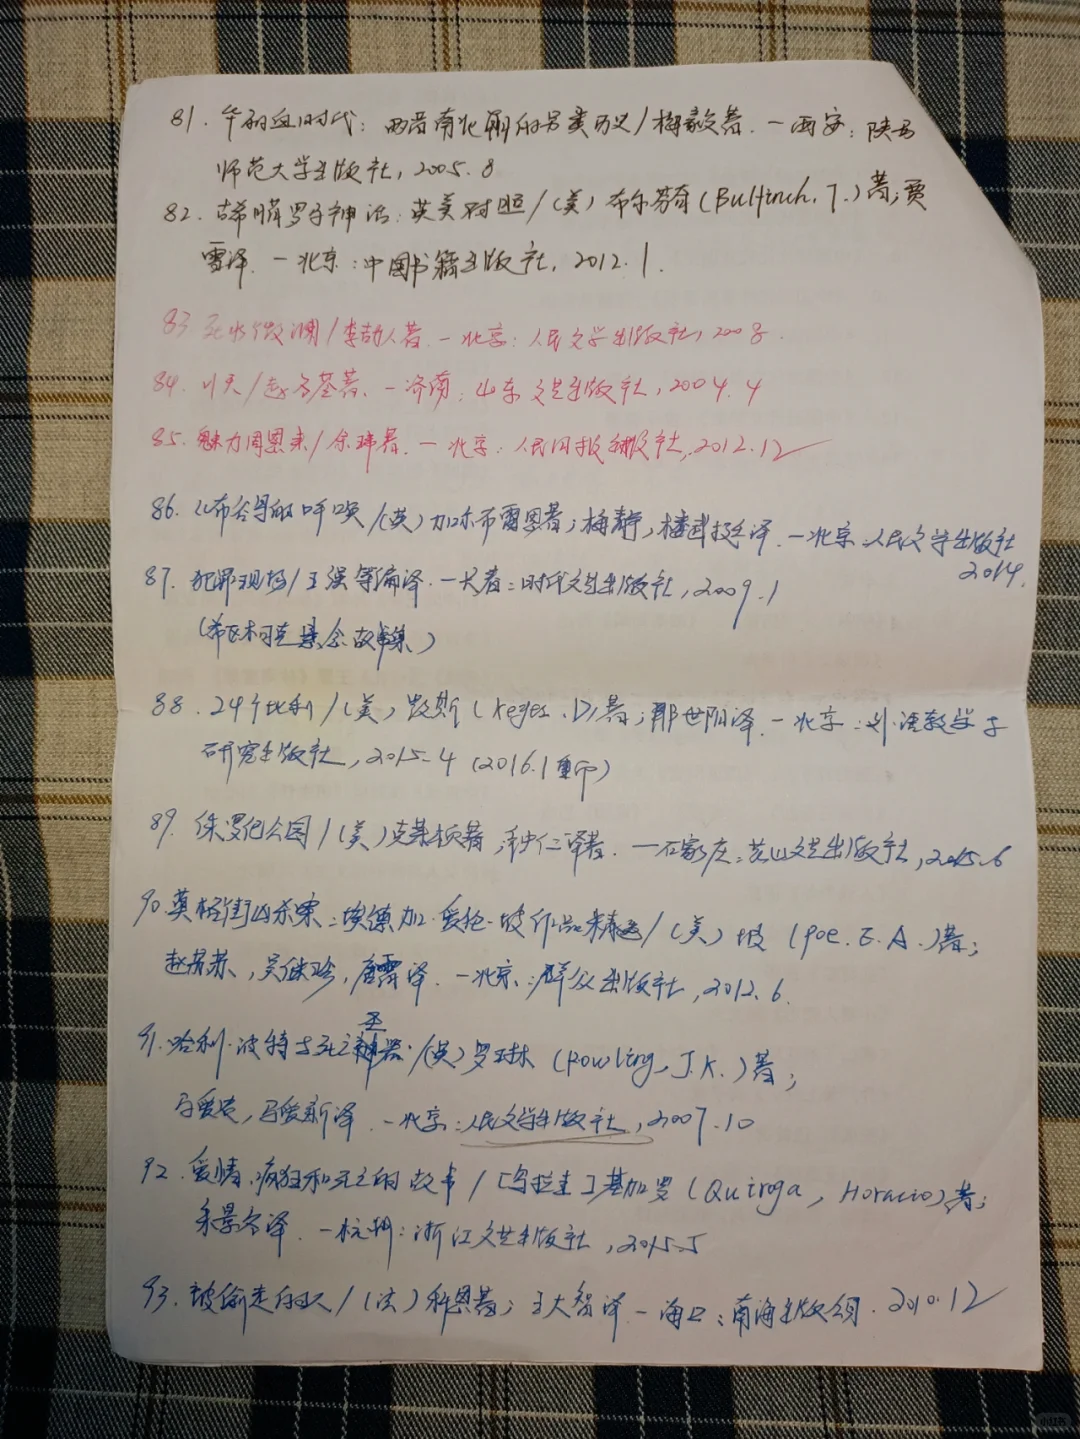 81. 华丽血时代：两晋南北朝的另类历史/梅毅著.－西安：陕西
师范大学出版社，2005.8
82. 古希腊罗马神话：英美对照/(美)布尔芬奇(Bulfinch, T.)著；贾
雪译.－北京：中国书籍出版社，2012.1.
83 死水微澜/李劼人著.－北京：人民文学出版社，2008.
84. 川天/赵名基著.－济南：山东文艺出版社，2004.4
85. 魅力周恩来/余玮著.－北京：人民日报出版社，2012.12
86. 布谷鸟的呼唤/(英)加尔布雷思著；梅静，译.－北京：人民文学出版社
2014.
87. 犯罪现场/王强等编译.－长春：时代文艺出版社，2009.1
(希区柯克悬念故事集)
88. 24个比利/(美)凯斯(Keyes, D)著；邢世阳译.－北京：外语教学与
研究出版社，2015.4 (2016.1重印)
89. 侏罗纪公园/(美)克莱顿著，钟仁译著.－石家庄：花山文艺出版社，2015.6
90. 莫格街凶杀案：埃德加·爱伦·坡作品精选/(美)坡(Poe. E. A.)著；
赵苏苏，吴继珍，唐霄译.－北京：群众出版社，2012.6.
91. 哈利·波特与死亡圣器/(英)罗琳(Rowling, J.K.)著；
马爱农，马爱新译.－北京：人民文学出版社，2007.10
92. 爱情，疯狂和死亡的故事/[乌拉圭]基罗加(Quiroga, Horacio)著；
朱景冬译.－杭州：浙江文艺出版社，2015.5
93. 被偷走的人/(法)科恩著；王大智译－海口：南海出版公司.2010.12